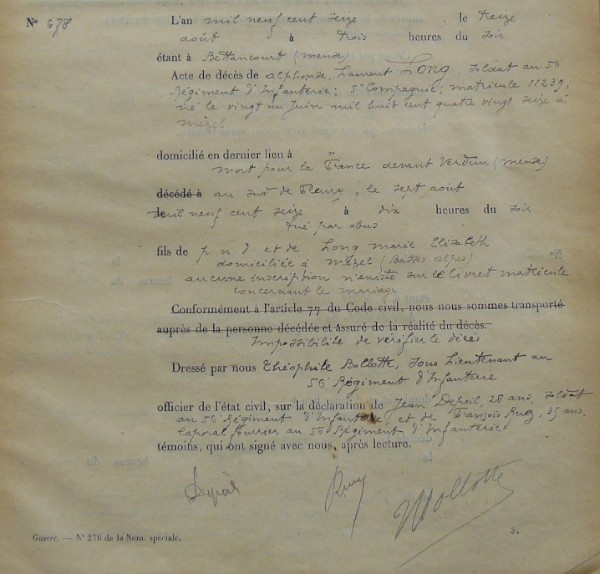 N° 678
L'an mil neuf cent seize le treize
août à trois heures du soir
étant à Béttancourt (meuse)
Acte de décès de alphonse, Laurent Long, soldat au 56
Régiment d'Infanterie; 5e Compagnie; matricule 11239;
né le vingt un Juin mil huit cent quatre vingt seize à
mézel
domicilié en dernier lieu à
mort pour la France devant Verdun (meuse)
décédé à au sud de Fleury, le sept août
mil neuf cent seize à dix heures du soir
tué par obus
fils de p. n. d et de Long marie Elizabeth
domiciliée à mézel (basses alpes)
aucune inscription n'existe sur le livret matricule
concernant le mariage
Conformément à l'article 77 du Code civil, nous nous sommes transporté
auprès de la personne décédée et assuré de la réalité du décès.
Impossibilité de vérifier le décès
Dressé par nous Théophile Bollotte, sous Lieutenant au
56 Régiment d'Infanterie
officier de l'état civil, sur la déclaration de Jean 28 ans, soldat
au 56 Régiment d'Infanterie et de François 25 ans,
Caporal fourrier au 56 Régiment d'Infanterie
témoins, qui ont signé avec nous, après lecture.
Bollotte
Guerre. — N° 276 de la Nom. spéciale.